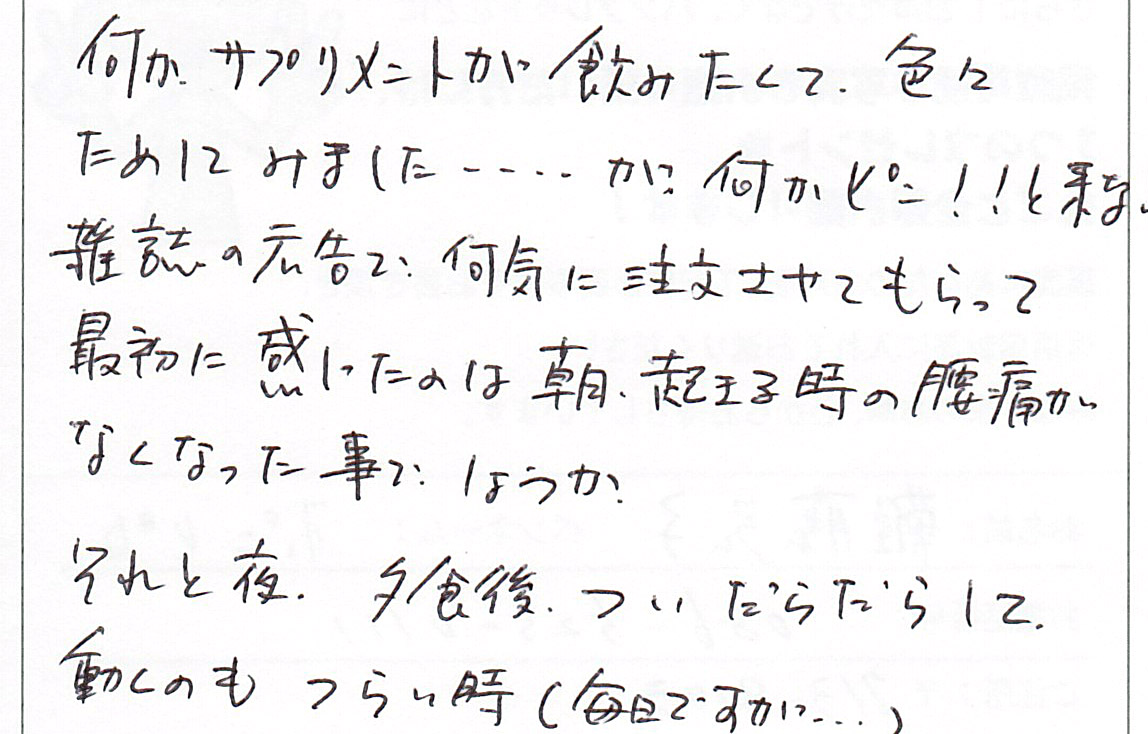 何か、サプリメントが飲みたくて、色々
ためしてみました‥‥‥が、何かピン!!と来な
雑誌の広告で、何気に注文させてもらって
最初に感じたのは朝、起きる時の腰痛が
なくなった事でしょうか。
それと夜、夕食後、ついだらだらして、
動くのもつらい時(毎日ですが…)